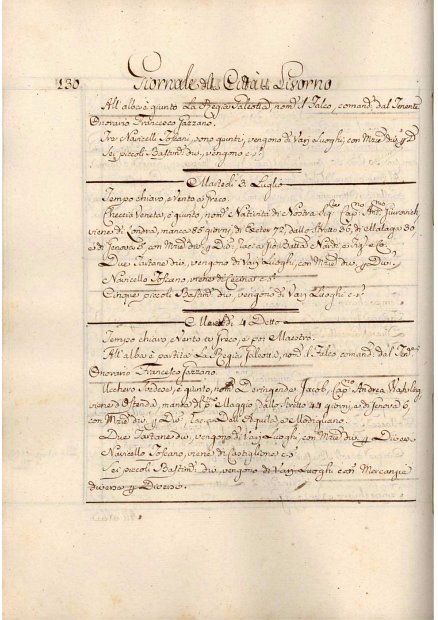 130 Giornale della Città di Livorno
All'alba è giunto La Regia Galeotta, nom.ta il Falco, comand.ta dal Tenente
Onorario Francesco Gazzano.
Tre Navicelli Toscani, sono giunti, vengono di Varj Luoghi, con Mer.e div.e
Sei piccoli Bastim.ti div.i, vengono
Martedì 3 Luglio
Tempo chiaro, e Vento a Greco.
Checcia Veneta, è giunto, nom.ta Natività di Nostra Sig.ra Cap.no Ant.o
viene di Londra, manca 85 giorni, di 72, dallo Stretto 36, di Malaga 30
e di Genova 6, con Mer.e div.e
Due Tartane div.e, vengono di Varj Luoghi, con Mer.e div.e p. Div.i
Navicello Toscano, viene di Cecina
Cinque piccoli Bastim.ti div.i, vengono di Varj Luoghi
4 Detto
Tempo chiaro, Vento a Greco, e poi Maestro.
All'alba è partita La Regia Galeotta, nom.ta il Falco, comand.ta dal Ten.te
Onorario Francesco Gazzano.
è giunto, nom.o Jacob, Cap.no Andrea
viene d'Ostenda, manca Maggio, dallo Stretto 44 giorni, e di Genova 6,
con Mer.e div.e p. Div.i Dell'Aquila, e Modigliano.
Due Tartane div.e, vengono di Varj Luoghi, con Mer.e div.e p. Diversi
Navicello Toscano, viene di Castiglione
Sei piccoli Bastim.ti div.i vengono di Varj Luoghi con Mercanzie
diverse p. Diversi.